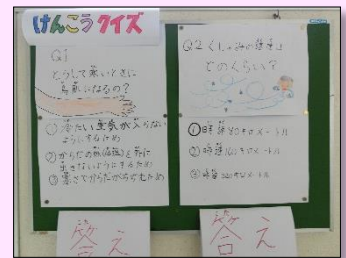 けんこうクイズ
Q1
どうして寒いときに
鳥肌になるの？
①冷たい空気が入らない
ようにするため
②からだの熱(体温)を外に
出さないようにするため
③寒さでからだがちぢむため
答え
Q2 くしゃみの速さは
どのくらい？
①時速80キロメートル
②時速160キロメートル
③時速320キロメートル
答え